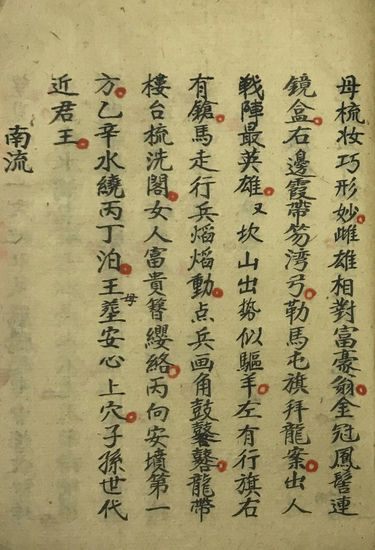 母梳妆巧形妙雌雄相對富豪翁金冠鳳髻連
鏡盒右邊霞帶笏湾弓勒馬屯旗拜龍案出人
戦陣最英雄又坎山出势似驅羊左有行旗右
有鎗馬走行兵熖熖動点兵画角鼓鼕鼕龍帶
樓台梳洗閣女人富貴簪纓絡丙向安墳第一
方乙辛水繞丙丁泊王母莹安心上穴子孫世代
近君王
南流